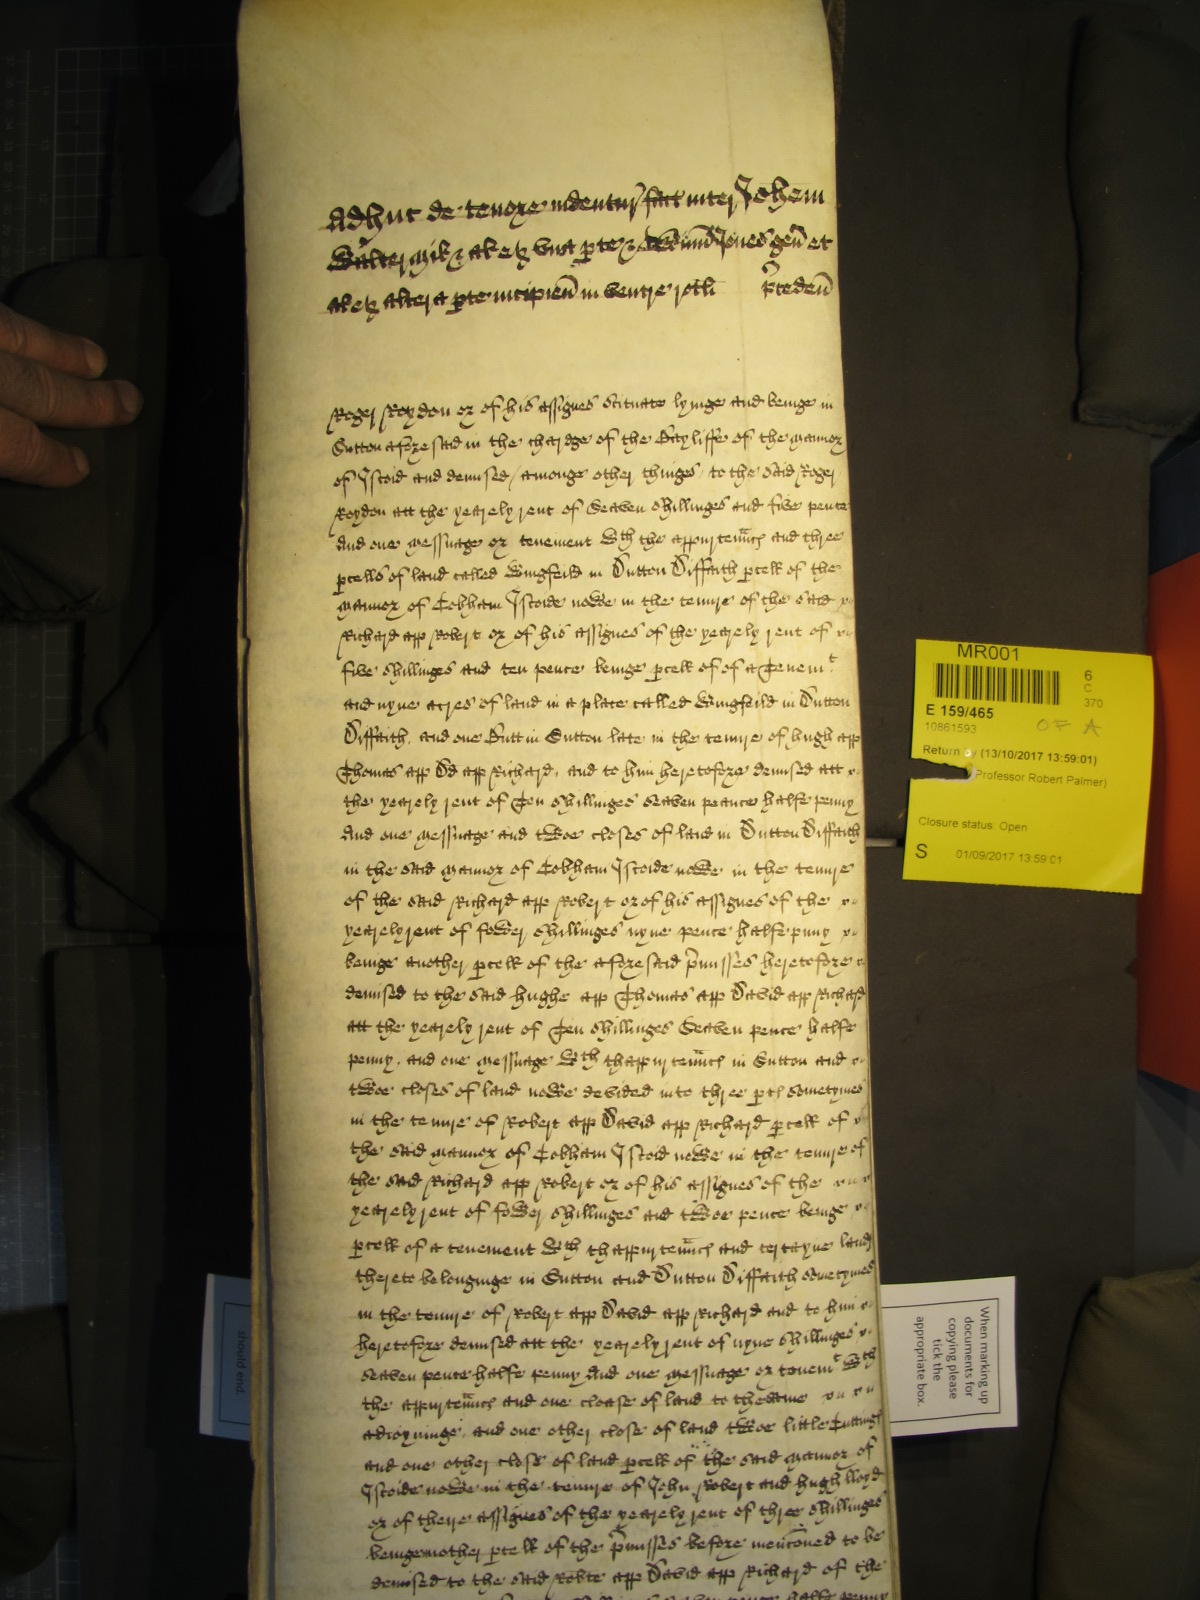 Adhuc de tenore indentur fact inter Johem
Walter milit & al ex una pte & Edmund Jones gen et
al ex altera pte incipien in ventre rotli preceden
Roger Roydon or of his assignes scituate lyinge and beinge in
Sutton aforesaid in the chardge of the Bayliffe of the mannor
of Iscoid and demised / amonge other thinges / to the said Roger
Roydon att the yearely rent of Seaven shillinges and five pence
And one messuage or tenement wth the appurtennces and three
pcells of land called Wingfeild in Dutton Diffaith pcell of the
mannor of Cobham Iscoide nowe in the tenure of the said
Richard app Robert or of his assignes of the yearely rent of
five shillinges and ten pence beinge pcell of of a Tenemt
and nyne acres of land in a place called Wingfeild in Dutton
Diffaith, and one Butt in Sutton late in the tenure of hugh app
Thomas app Dd app Richard, and to him heretofore demised att
the yearely rent of Ten shillinges seaven peance halfe penny
And one messuage and twoe closes of land in Dutton Diffaith
in the said mannor of Cobham Iscoide nowe in the tenure
of the said Richard app Robert or of his assignes of the
yearely rent of fower shillinges nyne pence halfe puny
beinge another pcell of the aforesaid pmisses heretofore
demised to the said hughe app Thomas app David app Richard
att the yearely rent of Ten shillinges Seaven pence halfe
penny, and one messuage wth thappurtennces in Sutton and
twoe closes of land nowe devided into three pts sometymes
in the tenure of Robert app David app Richard pcell of
the said mannor of Cobham Iscoid nowe in the tenure of
the said Richard app Robert or of his assignes of the
yearely rent of fower shillinges and twoe pence beinge
pcell of a tenement wth thappurtennces and certayne lands
thereto belonginge in Sutton and Dutton Diffaith sometymes
in the tenure of Robert app David app Richard and to him
heretofore demised att the yearely rent of nyne shillinges
seaven pence halfe penny And one messuage or tenemt wth
the appurtennces and one cloase of land to the same
adioyninge, and one other close of land twoe little
and one other close of land pcell of the said mannor of
Iscoide nowe in the tenure of John Robert and hugh lloyd
or of theire assignes of the yearely rent of three shillinges
beinge another pcell of the pmisses before menconed to be
demised to the said Robte app David app Richard of the
MR001
6
C
370
E 159/465
OF A
10861593
Return by (13/10/2017 13:59:01)
(Professor Robert Palmer)
Closure status: Open
S 01/09/2017 13:59:01
When marking up
documents for
copying please
tick the
appropriate box.
should end.